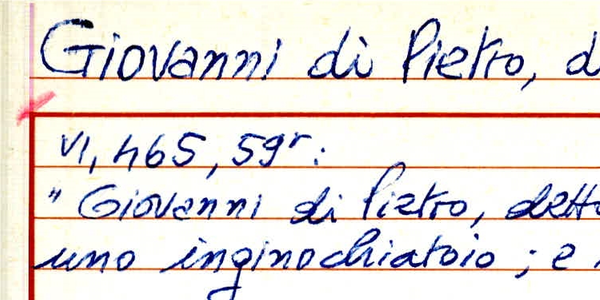 Giovanni di Pietro, d
VI, 465, 59r:
"Giovanni di Pietro, detto
uno inginochiatoio; e